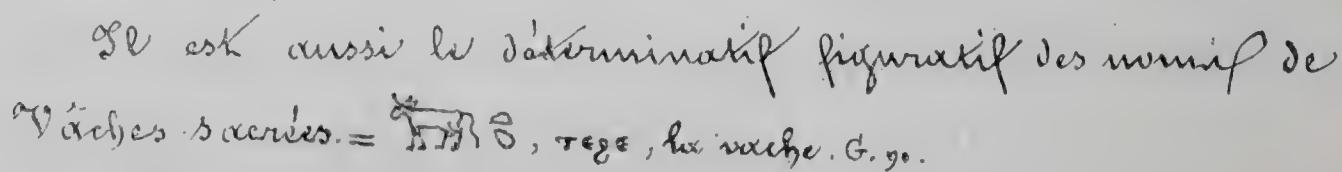 Il est aussi le déterminatif figuratif des noms de
Vaches sacrées. = , ⲧⲉϩⲉ, la vache. G. 90.